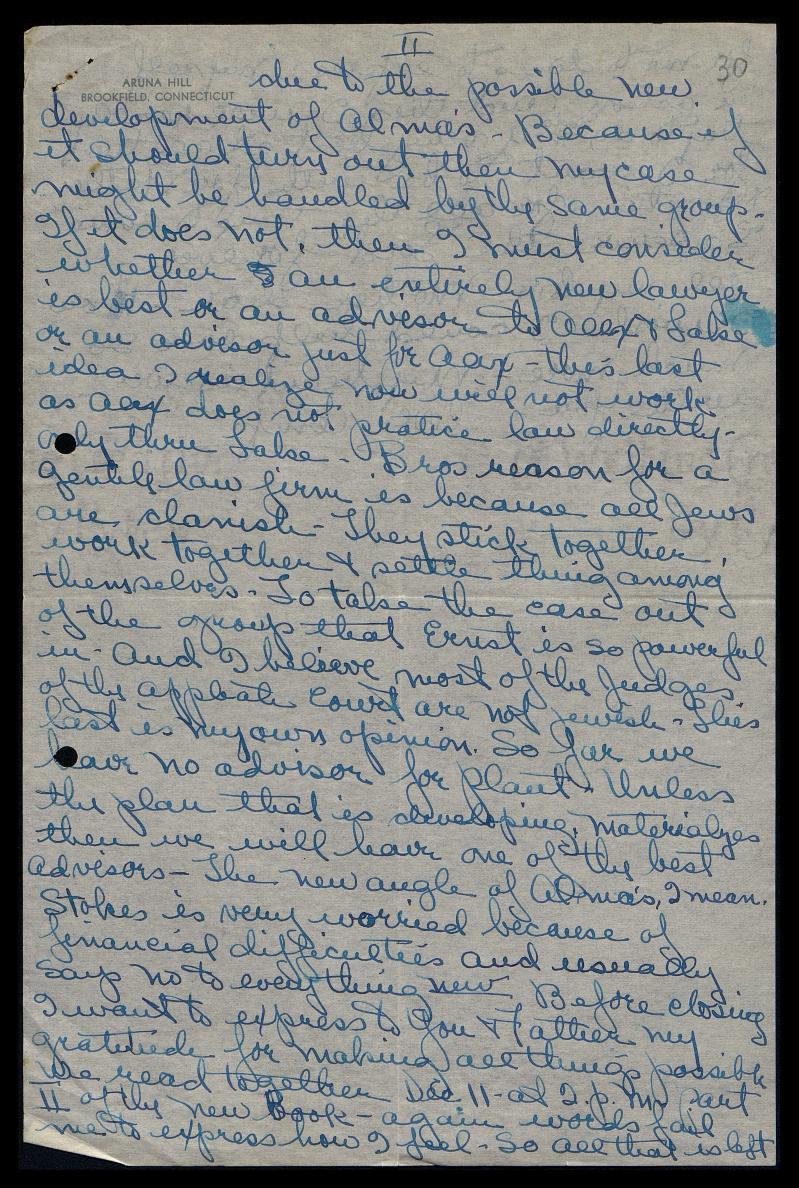 II
30
ARUNA HILL
BROOKFIELD, CONNECTICUT
due to the possible new
development of Alma's - Because if
it should turn out then my case
might be handled by the same group -
If it does not, then I must consider
whether an entirely new lawyer
is best or an advisor to Alex & Salse
or an advisor just for Alex - this last
idea I realize now will not work
as Alex does not pratice law directly -
only thru Salse - Bros reason for a
gentile law firm is because all Jews
are clanish - They stick together,
work together & settle thing among
themselves - To take the case out
of the group that Ernst is so powerful
in - And I believe most of the Judges
of the appleate court are not jewish - This
last is my own opinion. So far we
have no advisor for plant. Unless
the plan that is developing, materializes
then we will have one of the best
advisors - The new angle of Alma's, I mean.
Stokes is very worried because of
financial difficulties and usually
says no to everything new. Before closing
I want to express to You & Father my
gratitude for making all things possible
We read together Dec 11 - at 2. p. m. Part
II of the new Book - again words fail
me to express how I feel - So all that is left